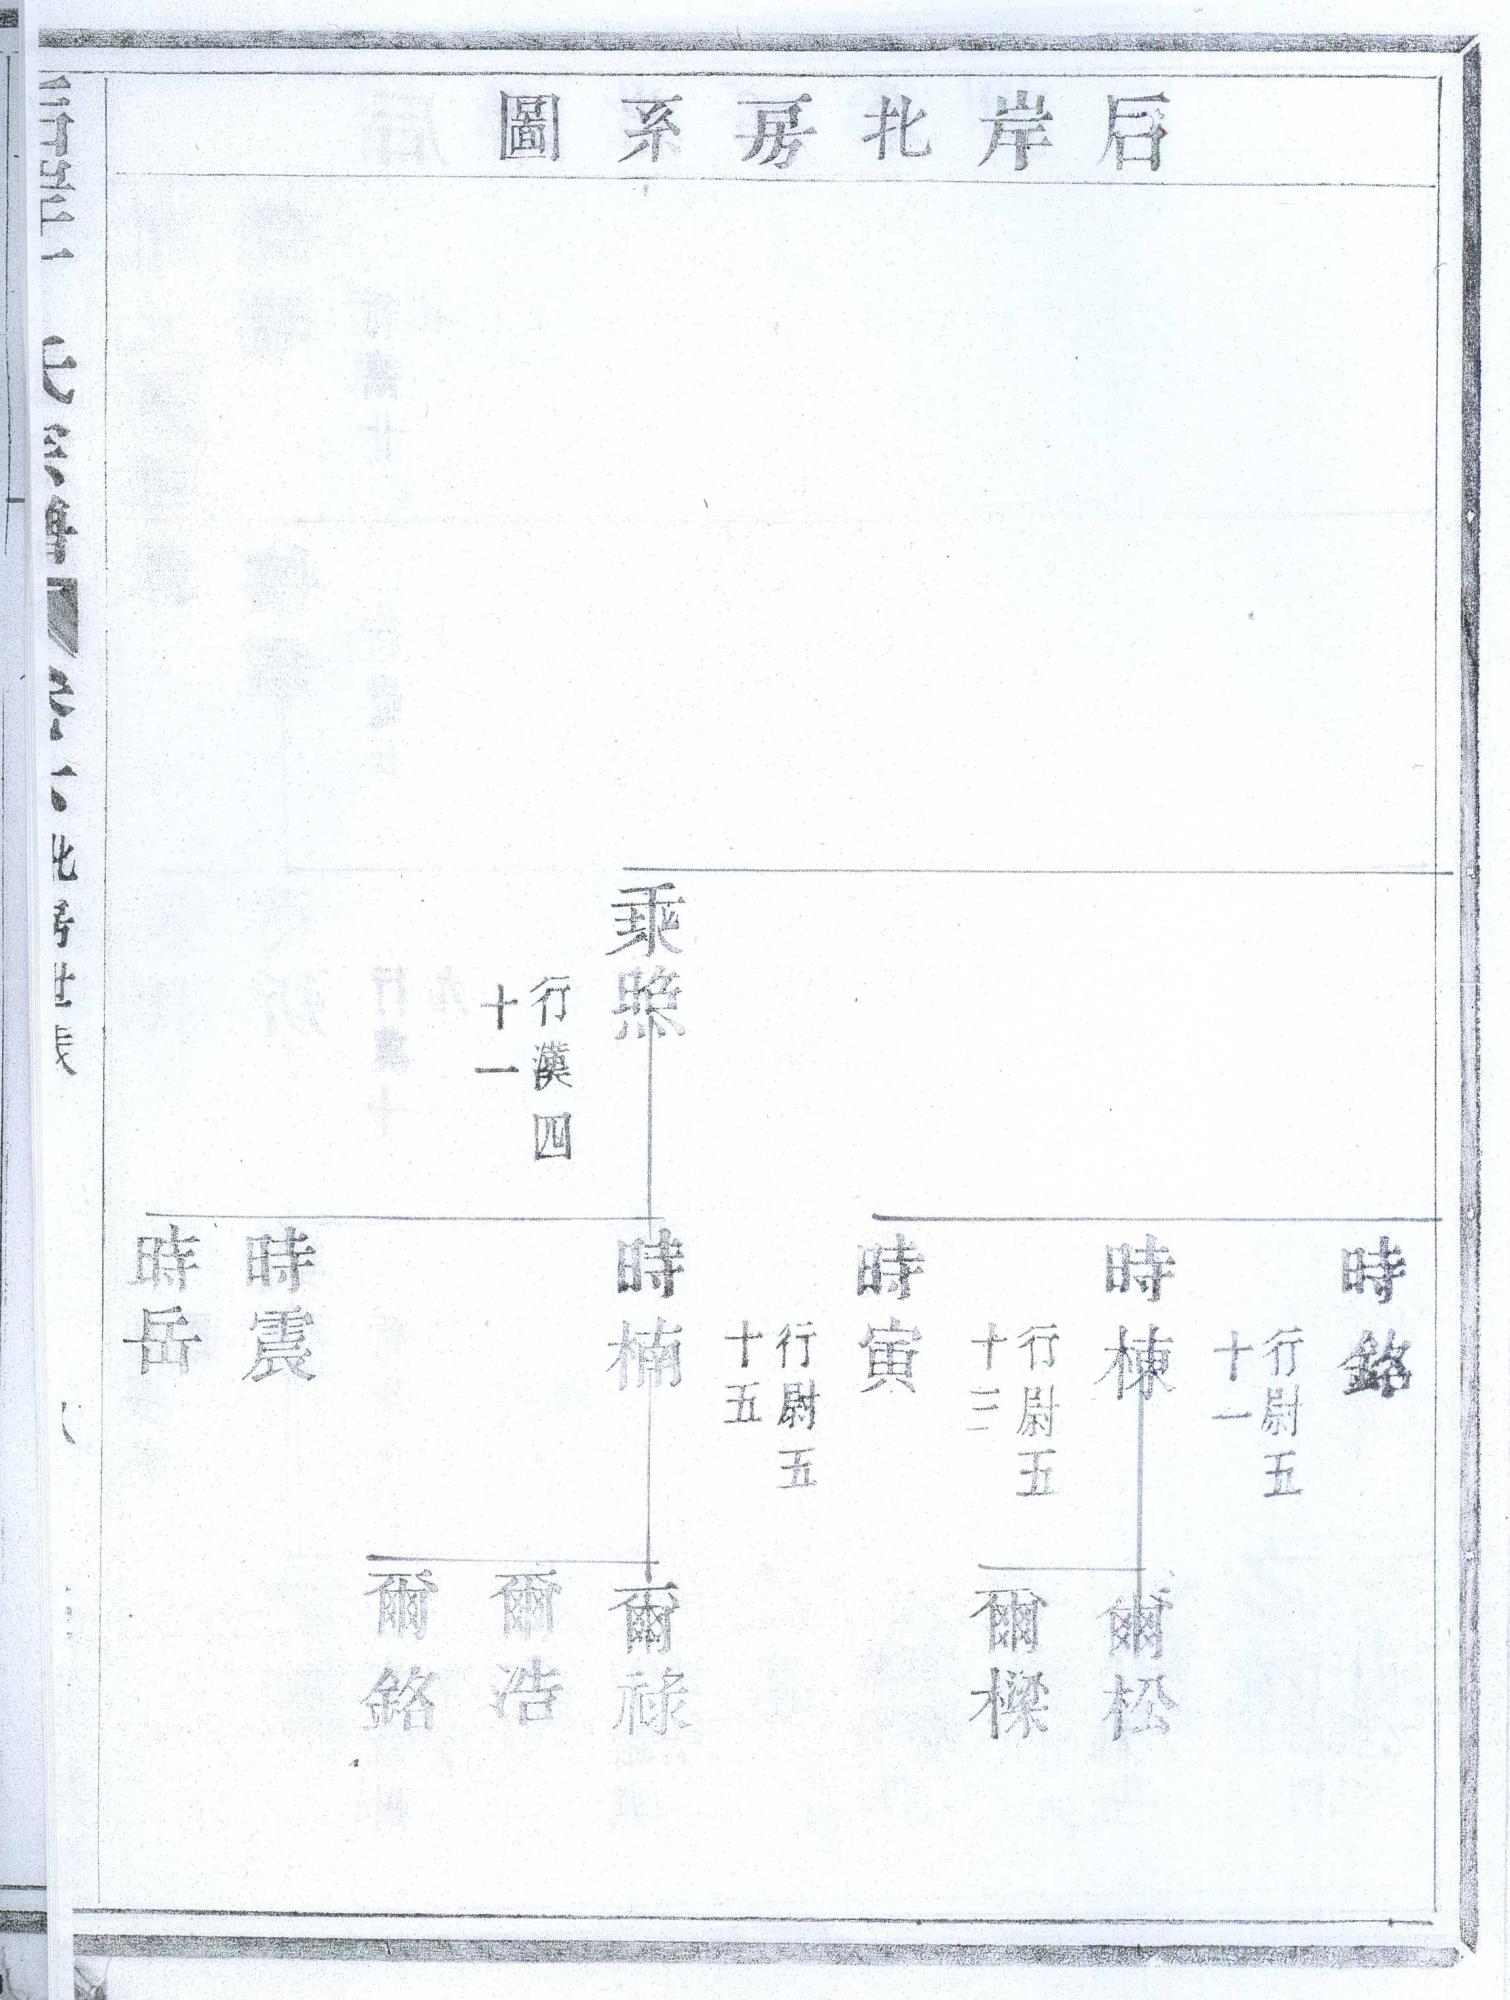 后岸北房系圖
秉照
行漢四
十一
時銘
行尉五
十一
時棟
行尉五
十三
時寅
行尉五
十五
時楠
時震
時岳
爾松
爾樑
爾祿
爾浩
爾銘
北房世表